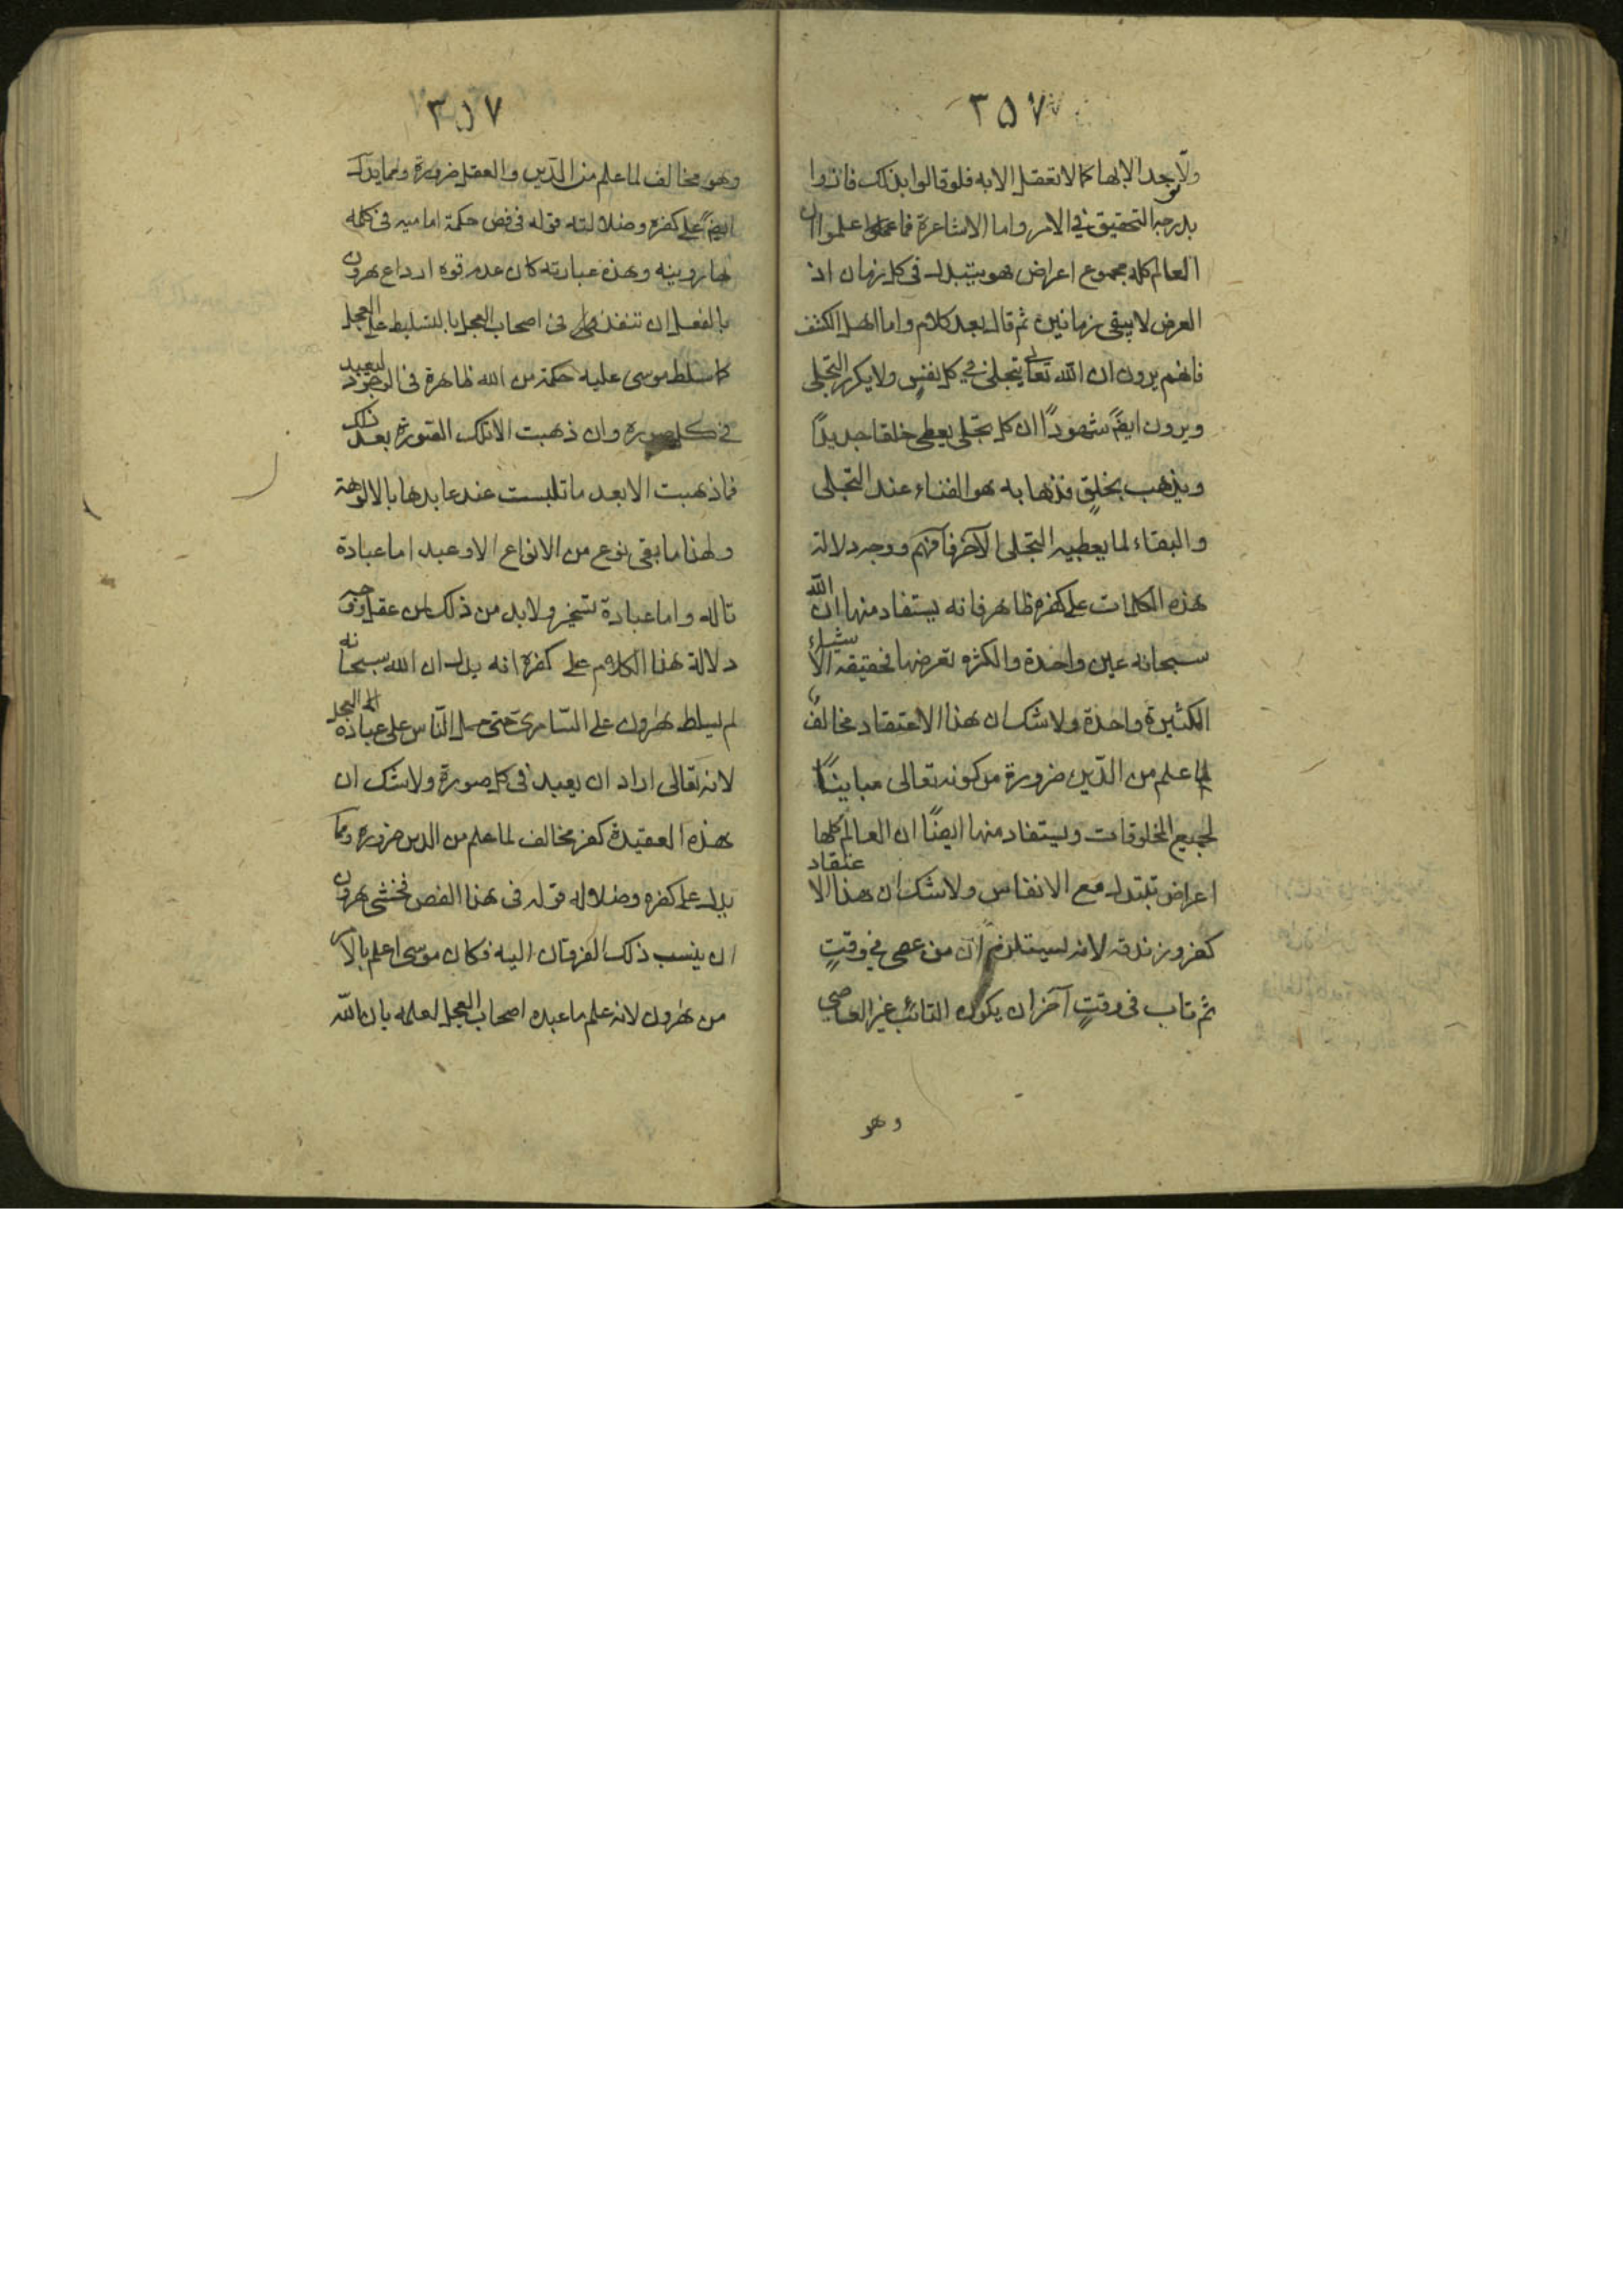 ٢٥٧
ولا يوجد الا بها كما لا تعقل الا به فلو قالوا بذلك فازوا
بدرجة التحقيق في الامر واما الاشاعرة فما علموا ان
العالم كله مجموع اعراض فهو يتبدل في كل زمان اذ
العرض لا يبقى زمانين ثم قال بعد كلام واما اهل الكشف
فانهم يرون ان الله تعالى يتجلى في كل نفس ولا يكرر التجلى
ويرون ايضً شهودًا ان كل تجلى يعطى خلقا جديدًا
ويذهب بخلقٍ فذهابه هو الفناء عند التجلى
والبقاء لما يعطيه التجلى الآخر فافهم ووجه دلالة
هذه الكلمات على كفره ظاهر فانه يستفاد منها ان الله
سبحانه عين واحدة والكثره تعرضها فحقيقة الاشياء
الكثيرة واحدة ولا شك ان هذا الاعتقاد مخالف
لما علم من الدّين ضرورة من كونه تعالى مباينًا
لجميع المخلوقات ويستفاد منها ايضًا ان العالم كلها
اعراض تبتدل مع الانفاس ولا شك ان هذا الاعتقاد
كفر وزندقه لانه يستلزم ان من عصى في وقتٍ
ثم تاب فى وقتٍ آخر ان يكون التائب غير العاصى
وهو
٣٥٧
وهو مخالف لما علم من الدّين والعقل ضرورة ومما يدل
ايضً على كفره وضلالته قوله فى فص حكمة اماميه فى كلمه
هارونيه وهذه عبارته كان عدم قوه ارداع هرون
بالفعل ان تنفذ فى اصحاب العجل بالتسليط على العجل
كما سلط موسى عليه حكمة من الله ظاهرة فى الوجود ليعبد
في كل صورة وان ذهبت تلك الصورة بعد ذلك
فما ذهبت الا بعد ما تلبست عند عابدها بالالوهة
ولهذا ما بقى نوع من الانواع الا وعبد اما عبادة
تاله واما عبادة تسخير ولا بد من ذلك لمن عقل ووجه
دلالة هذا الكلام على كفره انه يدل ان الله سبحانه
لم يسلط هرون على السّامرى حتى حمل النّاس على عبادة العجل
لانه تعالى اراد ان يعبد فى كل صورة ولا شك ان
هذه العقيدة كفر مخالف لما علم من الدين ضرورة ومما
يدل على كفره وضلاله قوله فى هذا الفص فخشى هرون
ان ينسب ذلك الفرقان اليه فكان موسى اعلم بالامر
من هرون لانه علم ما عبده اصحاب العجل لعلمه بان الله